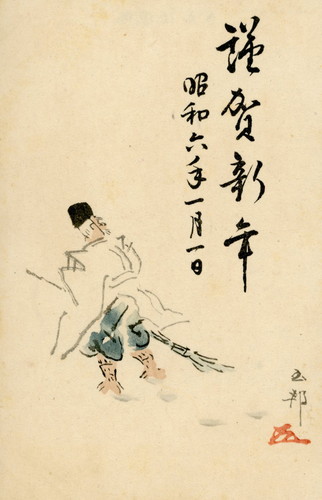 謹賀新年
昭和六年一月一日
玉邦